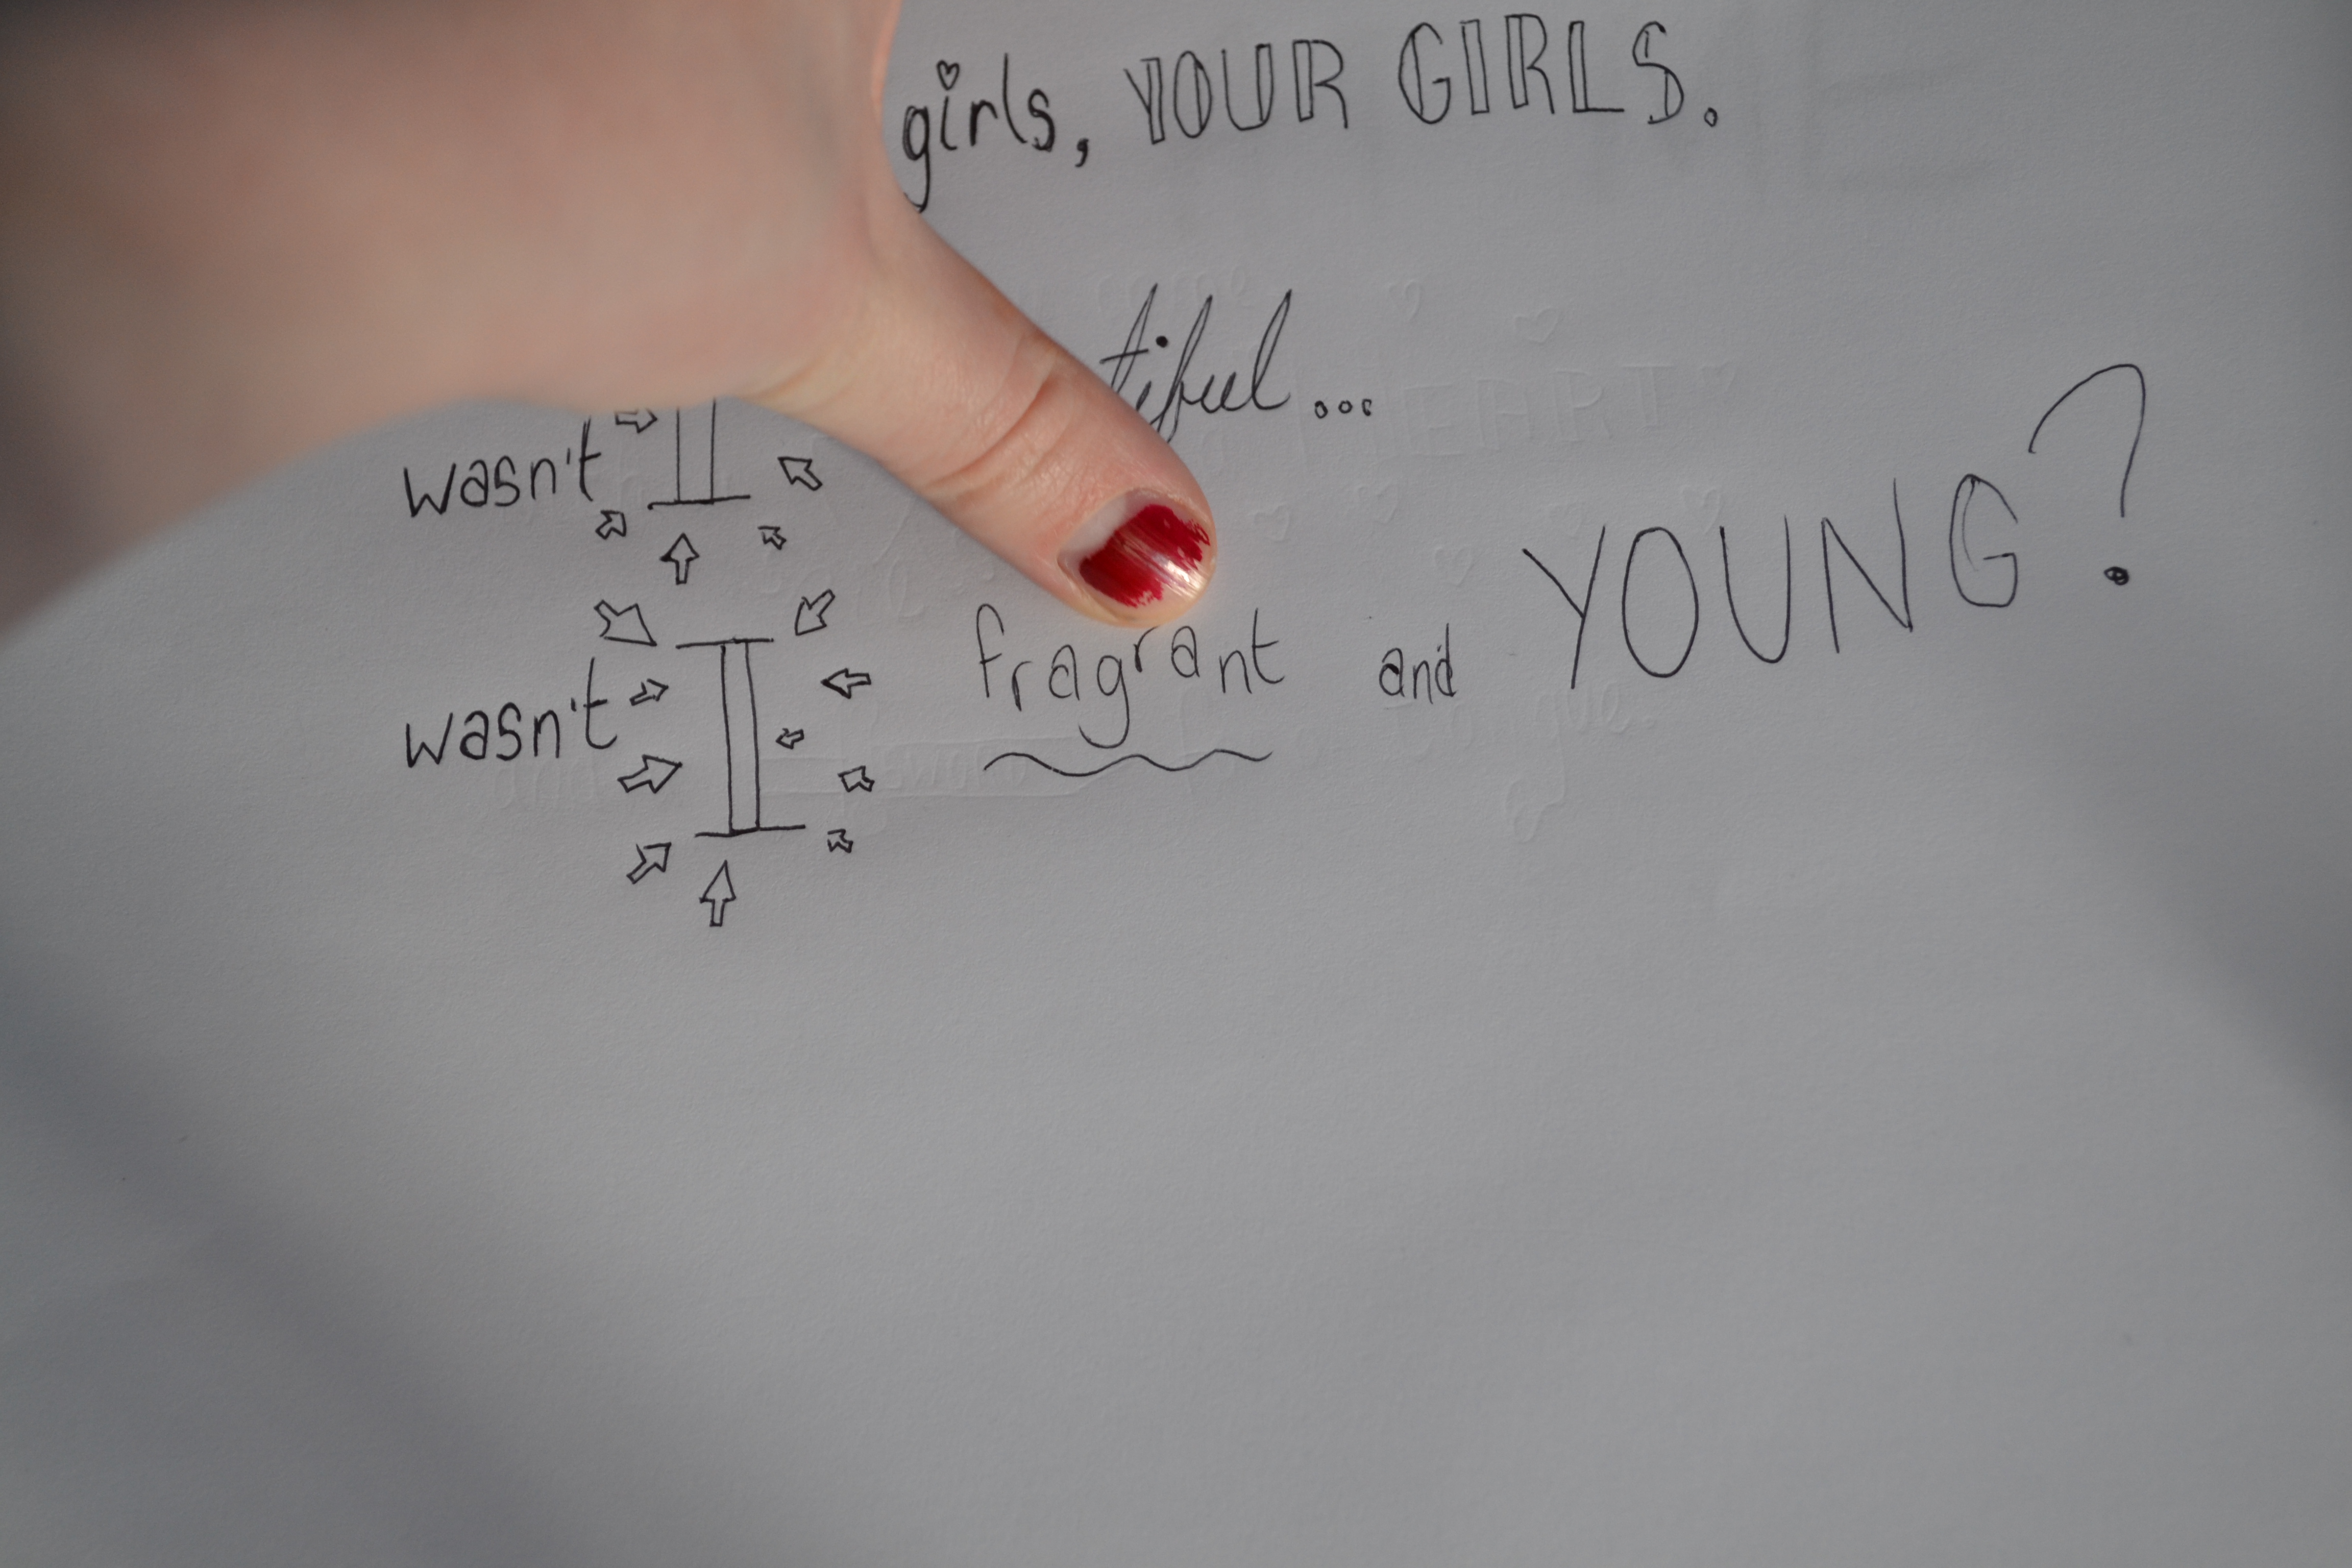 girls, YOUR GIRLS.
wasn't I tiful...
wasn't I fragrant and YOUNG?